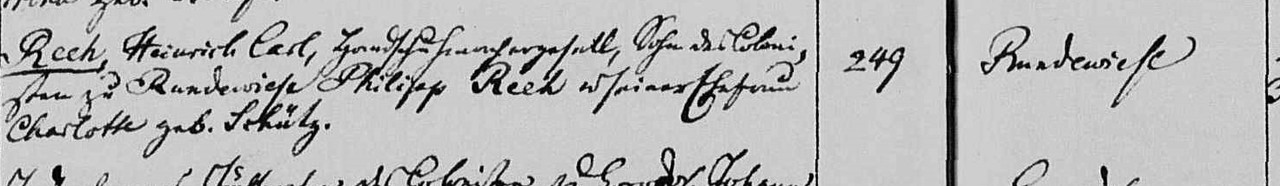 geb.
Rech, Heinrich Carl, Handschuhmachergesell, Sohn des Coloni-
sten zu Rundewiese Philipp Rech u seiner Ehefrau
Charlotte geb. Schütz.
249
Rundewiese
Colonisten zu Johann